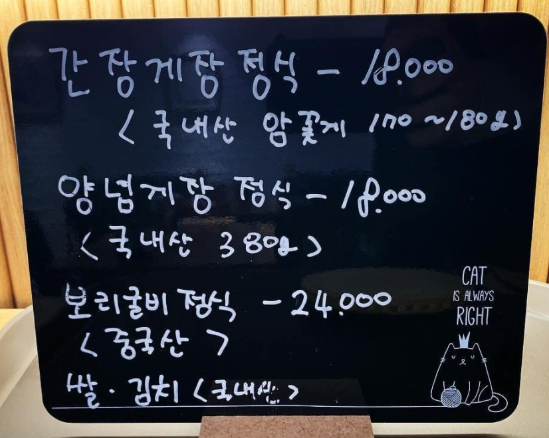 간장게장 정식 - 18.000
< 국내산 암꽃게 170 ~180g>
양념게장 정식 - 18.000
< 국내산 380g >
보리굴비 정식 - 24.000
< 중국산 >
쌀 · 김치 < 국내산 >
CAT
IS ALWAYS
RIGHT